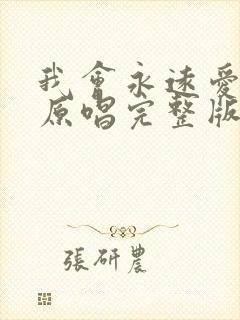 我會永遠愛
原唱完整版
張研農